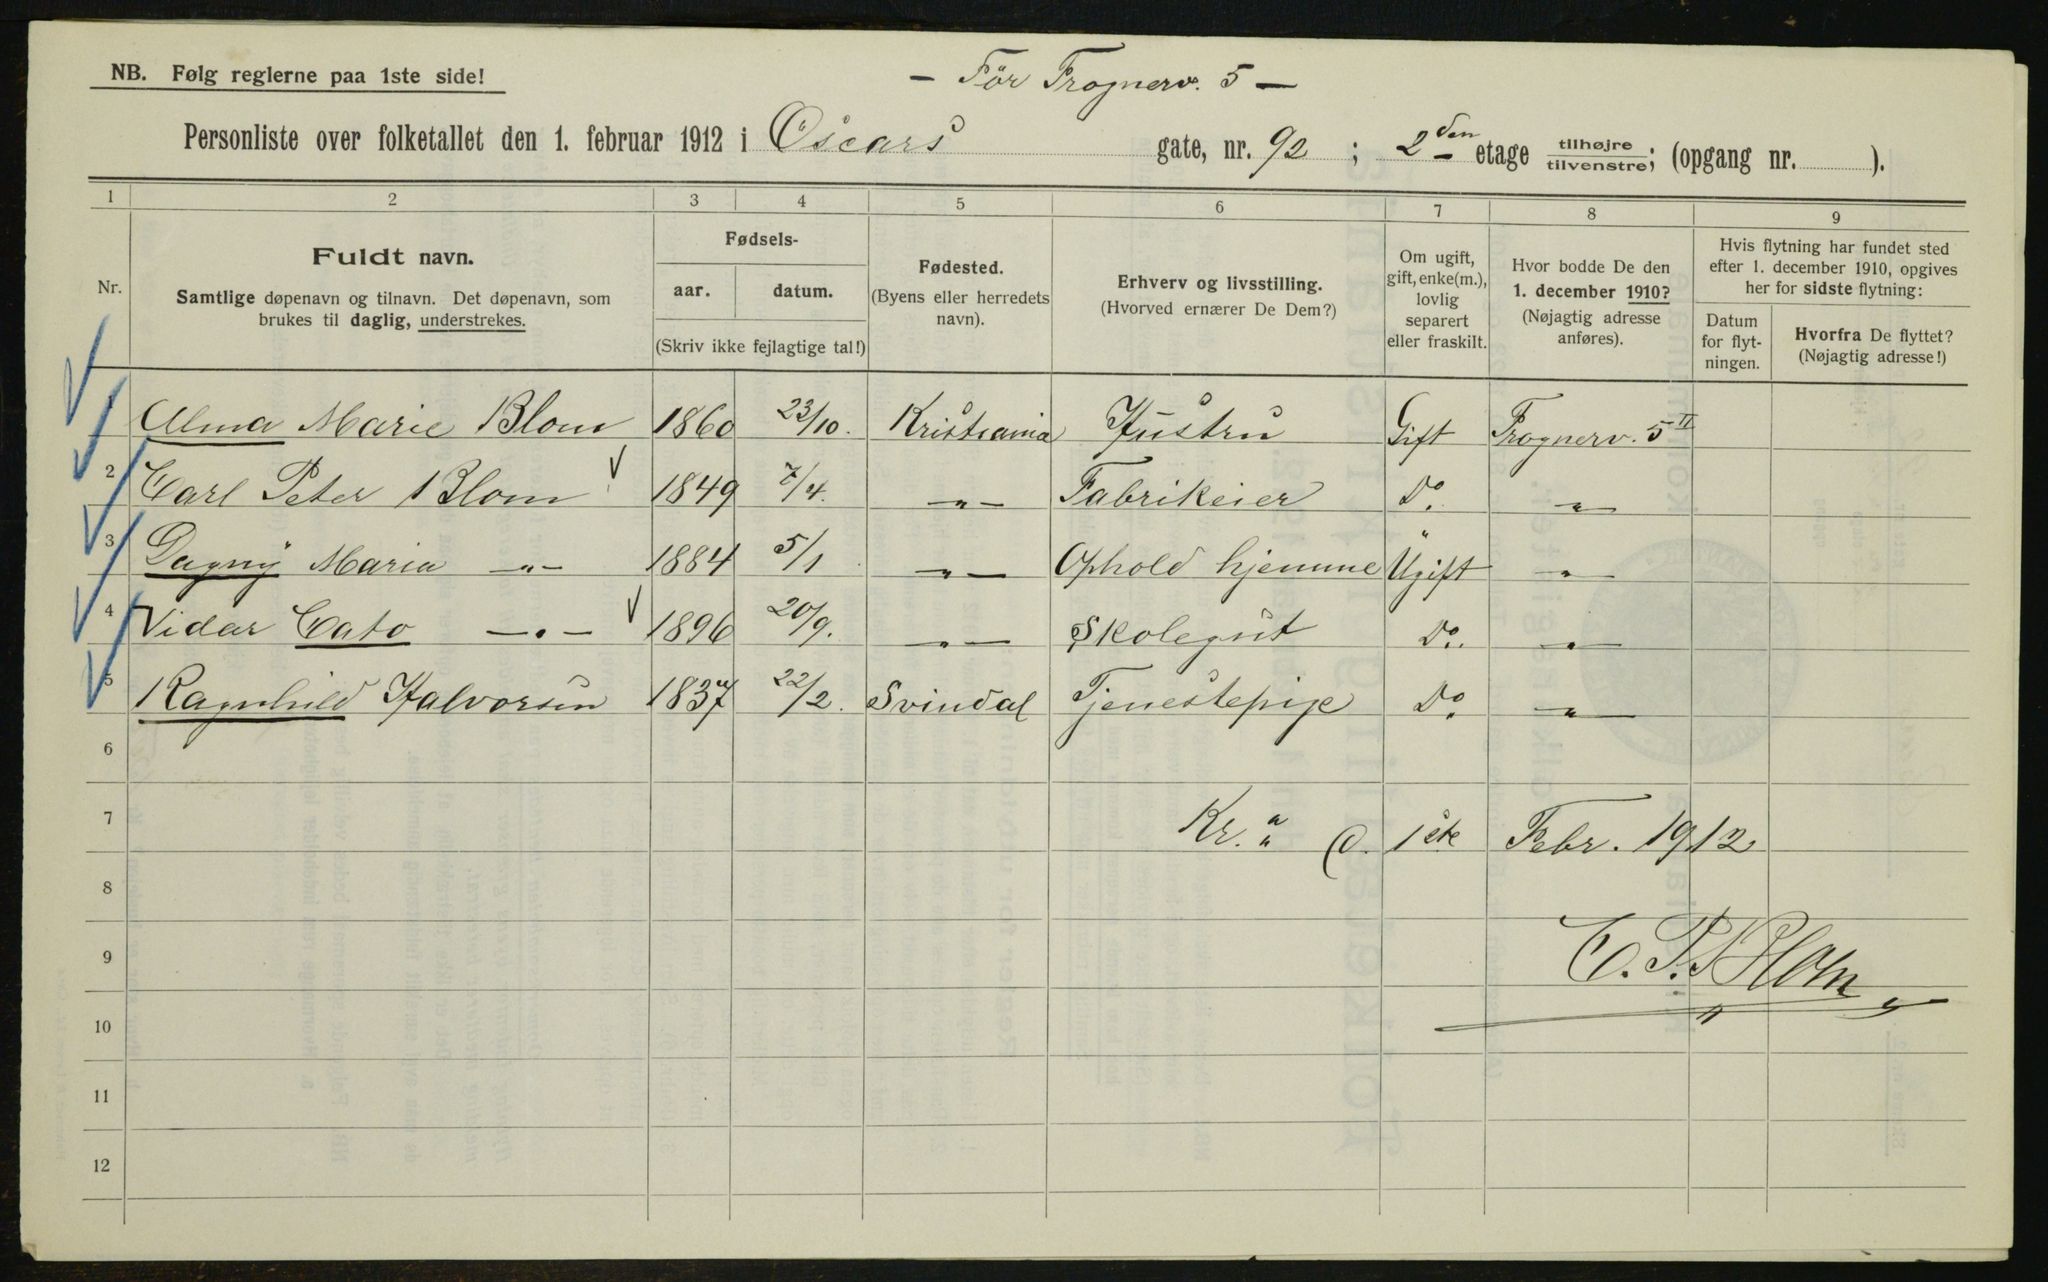 NB. Følg reglerne paa 1ste side!
— Før Frognerv. 5 —
Personliste over folketallet den 1. februar 1912 i Oscars gate, nr. 92 ; 2den etage tilhøjre tilvenstre; (opgang nr. ).
1 2 3 4 5 6 7 8 9
Nr.
Fuldt navn.
Samtlige døpenavn og tilnavn. Det døpenavn, som
brukes til daglig, understrekes.
Fødsels-
aar. datum.
(Skriv ikke fejlagtige tal!)
Fødested.
(Byens eller herredets
navn).
Erhverv og livsstilling.
(Hvorved ernærer De Dem?)
Om ugift,
gift, enke(m.),
lovlig
separert
eller fraskilt.
Hvor bodde De den
1. december 1910?
(Nøjagtig adresse
anføres).
Hvis flytning har fundet sted
efter 1. december 1910, opgives
her for sidste flytning:
Datum
for flyt-
ningen.
Hvorfra De flyttet?
(Nøjagtig adresse!)
1 Alma Marie Blom 1860 23/10. Kristiania Hustru Gift Frognerv. 5 II
2 Carl Peter Blom 1849 7/4. —"— Fabrikeier Do. —"—
3 Dagny Maria —"— 1884 5/1 —"— Ophold hjemme Ugift —"—
4 Vidar Cato —"— 1896 20/9. —"— Skolegut Do. —"—
5 Ragnhild Halvorsen 1837 22/2. Svindal Tjenestepige Do. —"—
6
7 Kr.a d. 1ste Febr. 1912
8
9 C. P. Blom
10
11
12